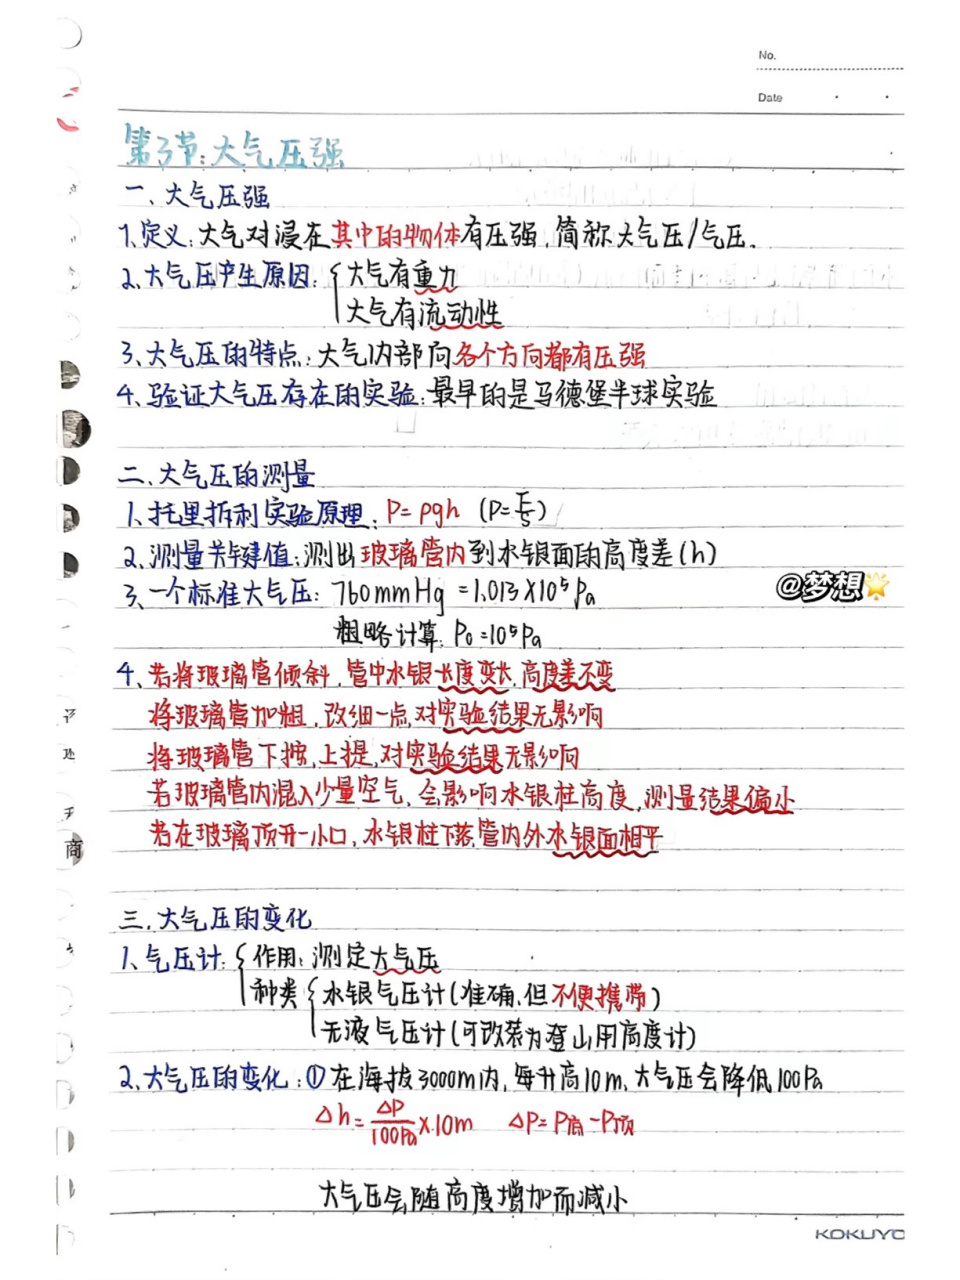 No.
Date
第3节:大气压强
一、大气压强
1.定义:大气对浸在其中的物体有压强,简称大气压/气压。
2.大气压产生原因:{大气有重力
大气有流动性
3.大气压的特点:大气内部向各个方向都有压强
4.验证大气压存在的实验:最早的是马德堡半球实验
二、大气压的测量
1.托里拆利实验原理:P=ρgh (P=F/S)
2.测量关键值:测出玻璃管内到水银面的高度差(h)
3.一个标准大气压: 760mmHg =1.013×10⁵Pa
@梦想🌟
粗略计算: P₀=10⁵Pa
4.若将玻璃管倾斜,管中水银长度变长,高度差不变
将玻璃管加粗,改细一点,对实验结果无影响
将玻璃管下按,上提,对实验结果无影响
若玻璃管内混入少量空气,会影响水银柱高度,测量结果偏小
若在玻璃顶开一小口,水银柱下落,管内外水银面相平
商
三、大气压的变化
1.气压计:{作用:测定大气压
种类{水银气压计(准确,但不便携带)
无液气压计(可改装为登山用高度计)
2.大气压的变化:①在海拔3000m内,每升高10m,大气压会降低100Pa
Δh=ΔP/100Pa×10m ΔP=P底-P顶
大气压会随高度增加而减小
KOKUYO